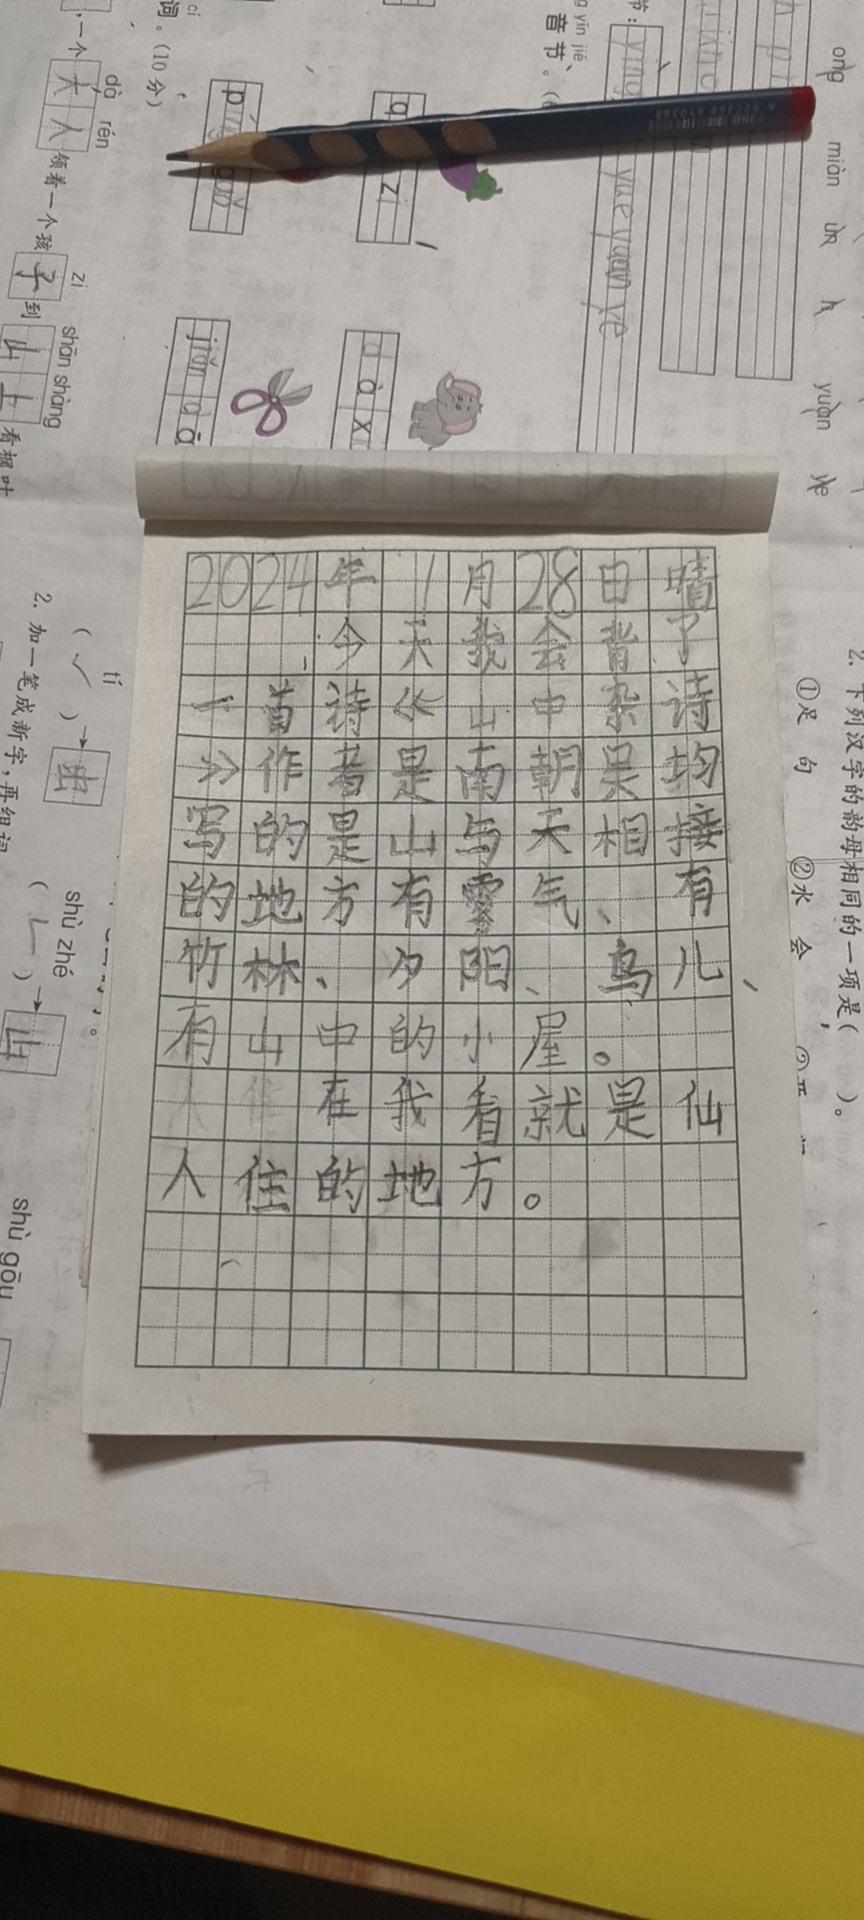 2024年1月28日晴
今天我会背了
一首诗《山中杂诗
》作者是南朝吴均
写的是山与天相接
的地方有雾气、有
竹林、夕阳、鸟儿、
有山中的小屋。
在我看就是仙
人住的地方。
词。(10分)
cí
,一个
dà rén
大人
领着一个孩
zi
子
到
shān shàng
山上
看枫叶
2. 加一笔成新字,再组词
(✓)→
tí
虫
shù zhé
(㇄)→
山
shù gōu
yīn jié
音节。
zi
yuè yuan ye
jiǎn
ong
miàn
h
yuàn
ye
2. 下列汉字的韵母相同的一项是( )。
①足 句
②水 会